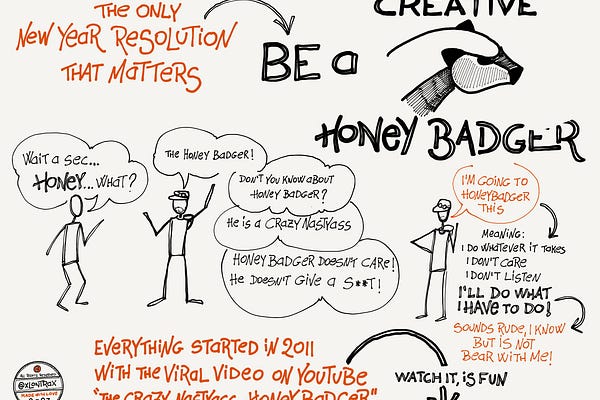 THE ONLY
NEW YEAR RESOLUTION
THAT MATTERS
CREATIVE
BE a
HONEY BADGER
WAIT A SEC...
HONEY... WHAT?
THE HONEY BADGER!
DON'T YOU KNOW ABOUT
HONEY BADGER?
HE IS A CRAZY NASTYASS
HONEY BADGER DOESN'T CARE!
HE DOESN'T GIVE A S**T!
I'M GOING TO
HONEYBADGER
THIS
MEANING:
I DO WHATEVER IT TAKES
I DON'T CARE
I DON'T LISTEN
I'LL DO WHAT
I HAVE TO DO!
SOUNDS RUDE, I KNOW
BUT IS NOT
BEAR WITH ME!
EVERYTHING STARTED IN 2011
WITH THE VIRAL VIDEO ON YOUTUBE
"THE CRAZY NASTYASS HONEY BADGER"
WATCH IT, IS FUN
ALL RIGHTS RESERVED
@XLONTRAX
MADE WITH LOVE